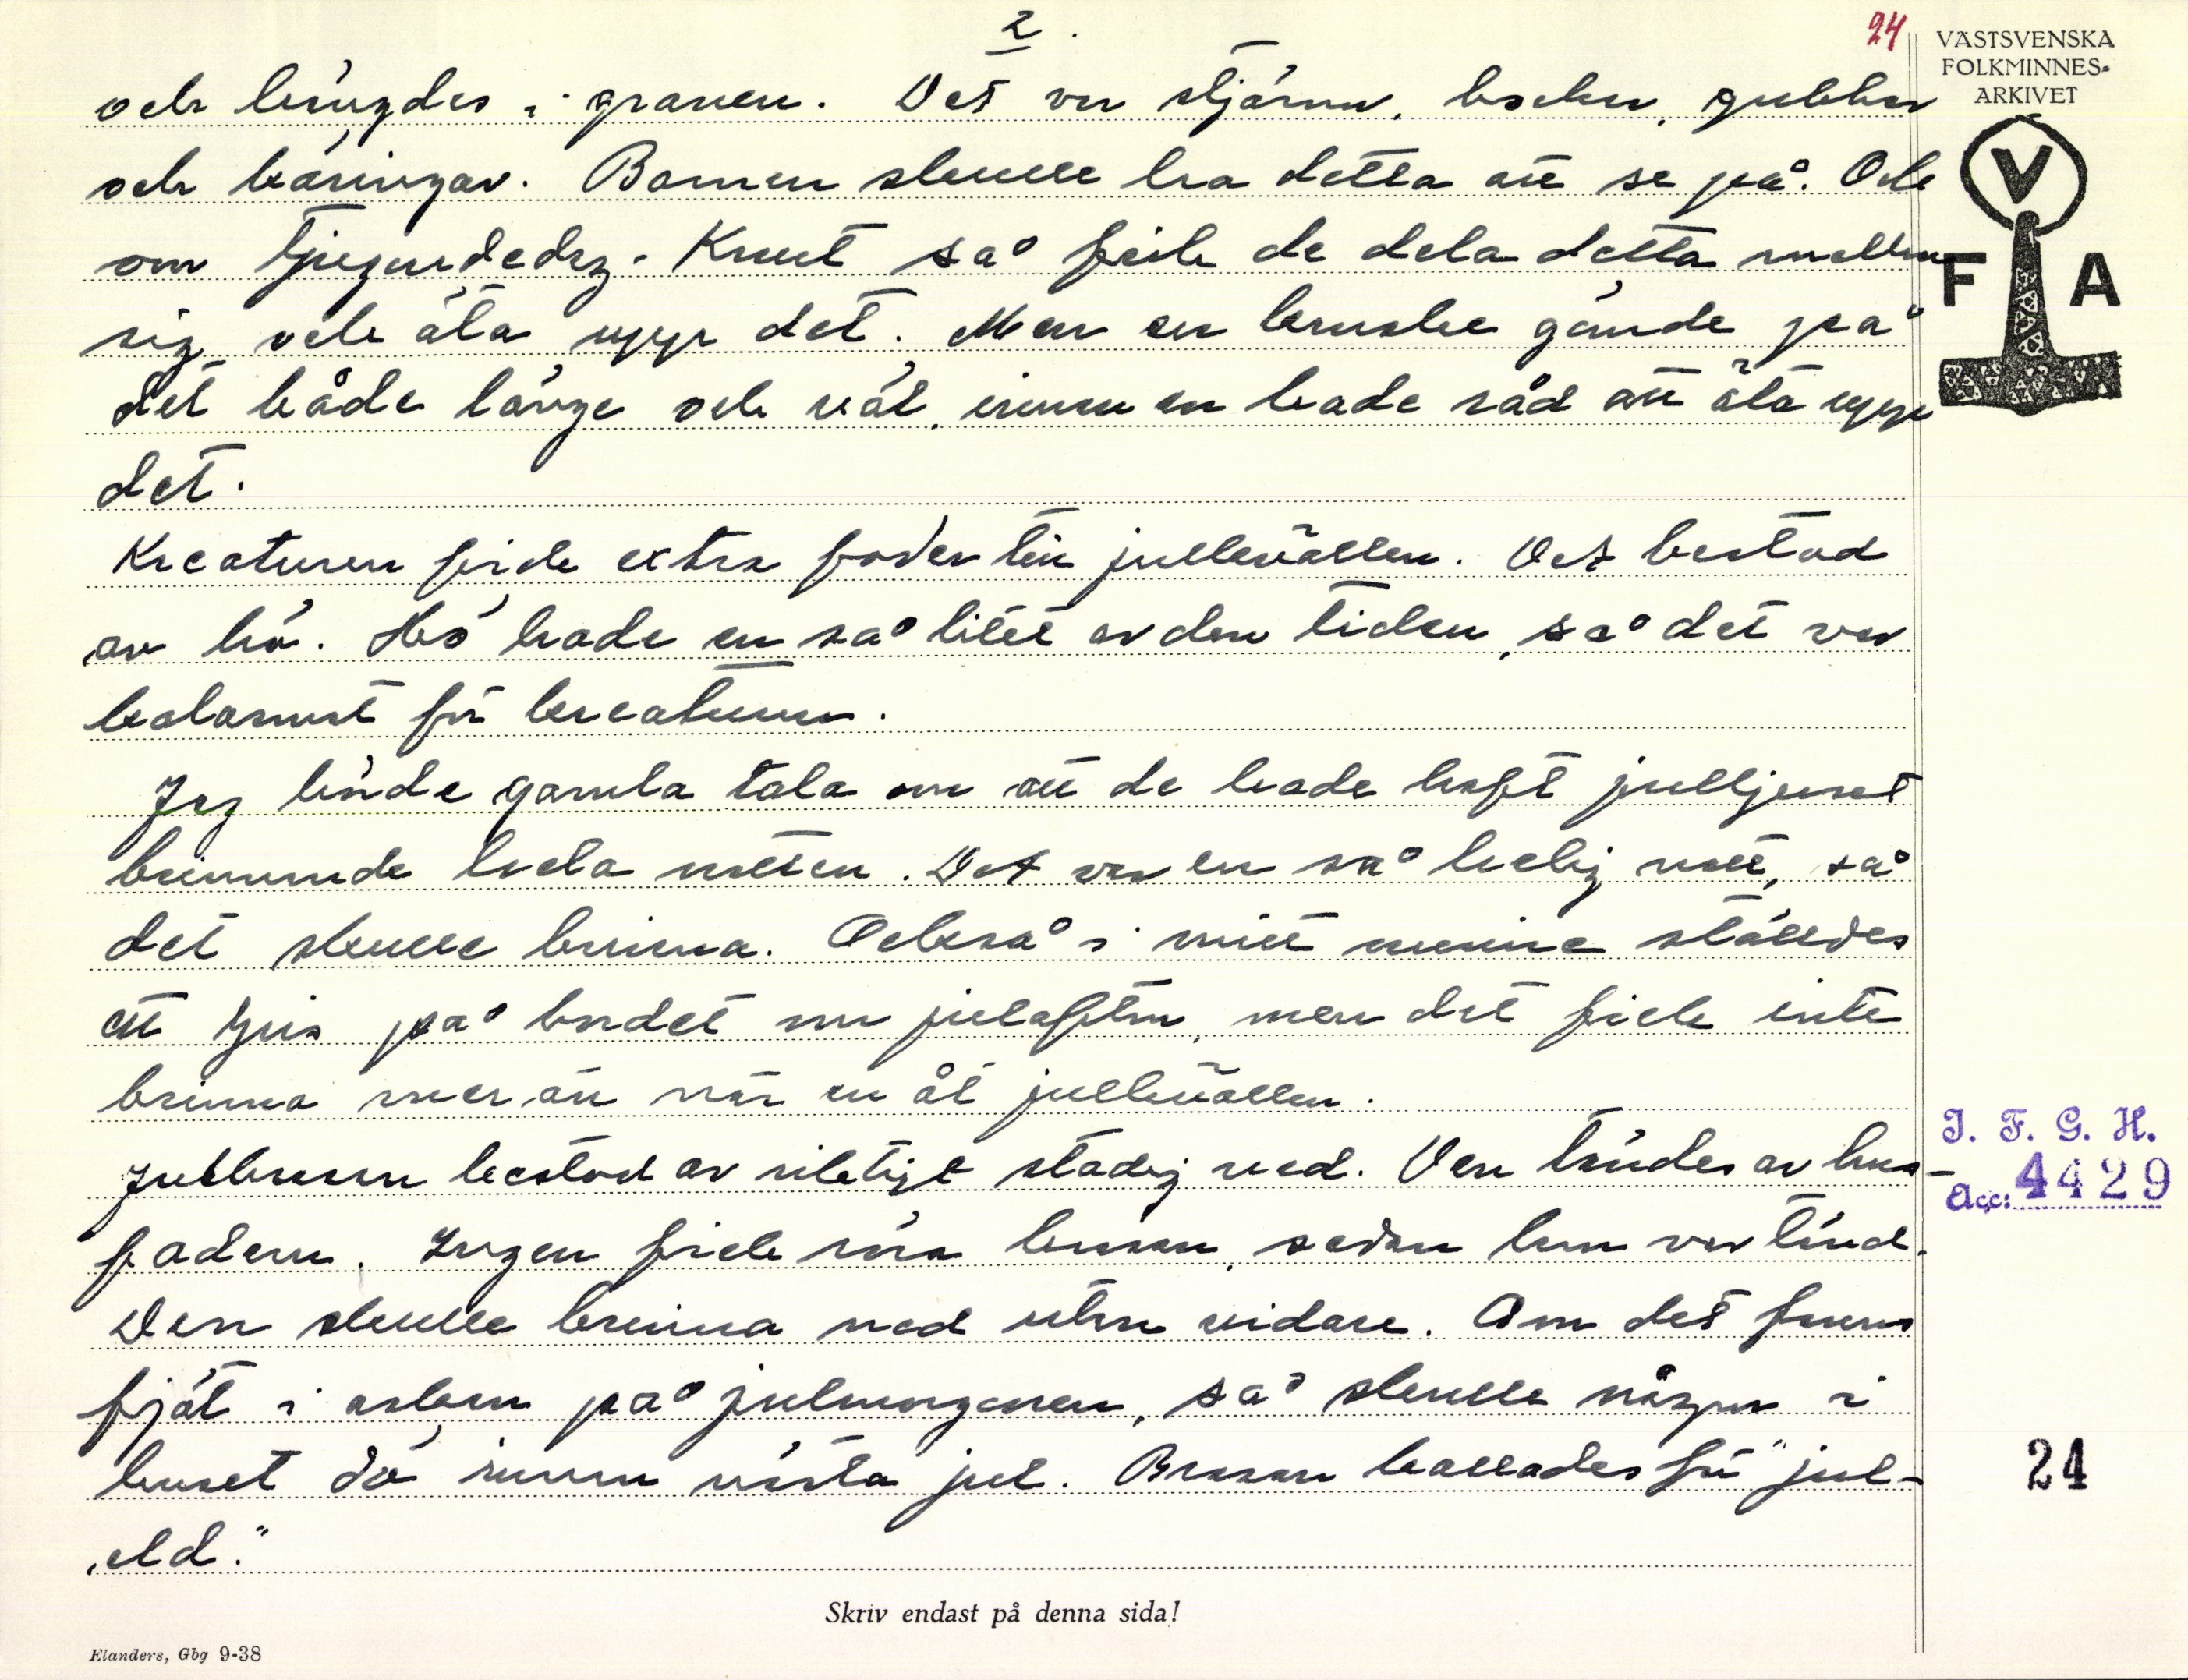 2.
24
VÄSTSVENSKA
FOLKMINNES-
ARKIVET
V
F A
och hängdes i granen. Det var stjärnor, bockar, gubbar
och käringar. Barnen skulle ha detta att se på. Och
om tjugundedag Knut så fick de dela detta mellan
sig och äta upp det. Men en kruska gände på
det både länge och väl, innan en hade råd att äta upp
det.
Kreaturen fick extra foder till jullekvällen. Det bestod
av hö. Hö hade en så litet av den tiden, så det var
kalasmat för kreaturen.
Jag hörde gamla tala om att de hade haft julljuset
brinnande hela natten. Det var en så helig natt, så
det skulle brinna. Också i mitt minne ställdes
ett ljus på bordet om julafton, men det fick inte
brinna mer än när en åt jullekvällen.
Julbrasan bestod av riktigt stadig ved. Den tändes av hus-
fadern. Ingen fick röra brasan, sedan hon var tänd.
Den skulle brinna ned utan vidare. Om det fanns
fjät i askan på julmorgonen, så skulle någon i
huset dö innan nästa jul. Brasan kallades för "jul-
eld."
I. F. G. H.
Acc: 4429
24
Skriv endast på denna sida!
Elanders, Gbg 9-38